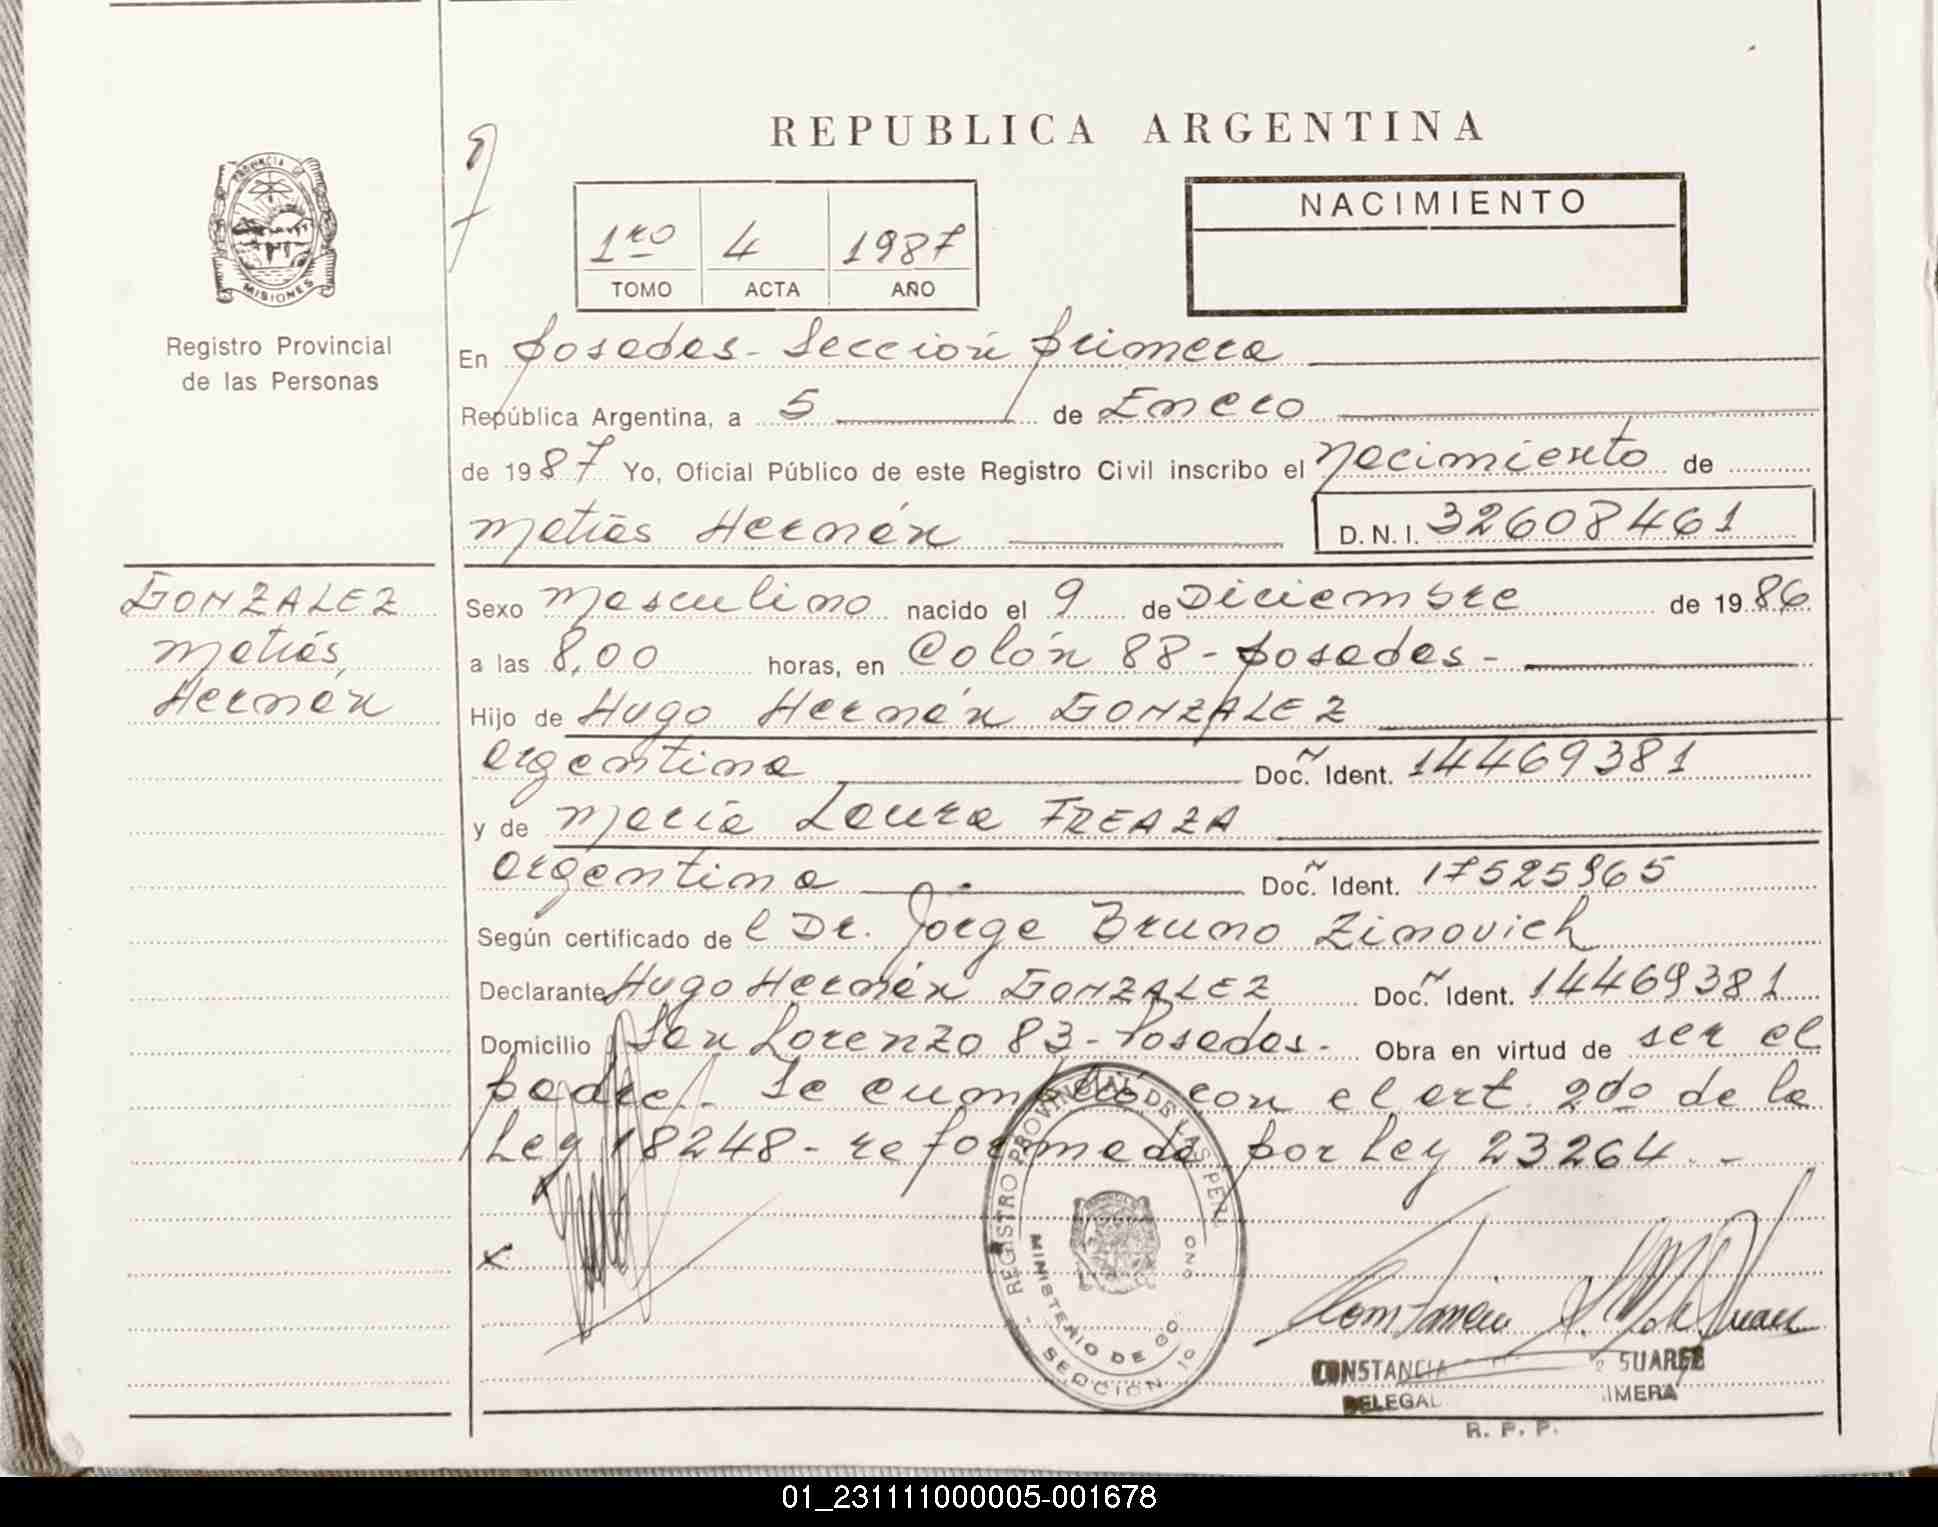 REPUBLICA ARGENTINA
PROVINCIA DE
MISIONES
Registro Provincial
de las Personas
1ro 4 1987
TOMO ACTA AÑO
NACIMIENTO
En Posadas - Sección Primera
República Argentina, a 5 de Enero
de 1987 Yo, Oficial Público de este Registro Civil inscribo el Nacimiento de
Matías Hernán D.N.I. 32608461
GONZALEZ
Matías
Hernán
Sexo Masculino nacido el 9 de Diciembre de 1986
a las 8,00 horas, en Colón 88 - Posadas -
Hijo de Hugo Hernán GONZALEZ
argentino Doc. Ident. 14469381
y de María Laura FREAZA
argentina Doc. Ident. 17525965
Según certificado de l Dr. Jorge Bruno Zimovich
Declarante Hugo Hernán GONZALEZ Doc. Ident. 14469381
Domicilio San Lorenzo 83 - Posadas - Obra en virtud de ser el
padre - Se cumplió con el art. 2do de la
Ley 18248 - reformada por Ley 23264 -
x
REGISTRO PROVINCIAL DE LAS PER
MINISTERIO DE GO
SECCION 1o
CONSTANCIA SUAREZ
R. P. P.
01_231111000005-001678